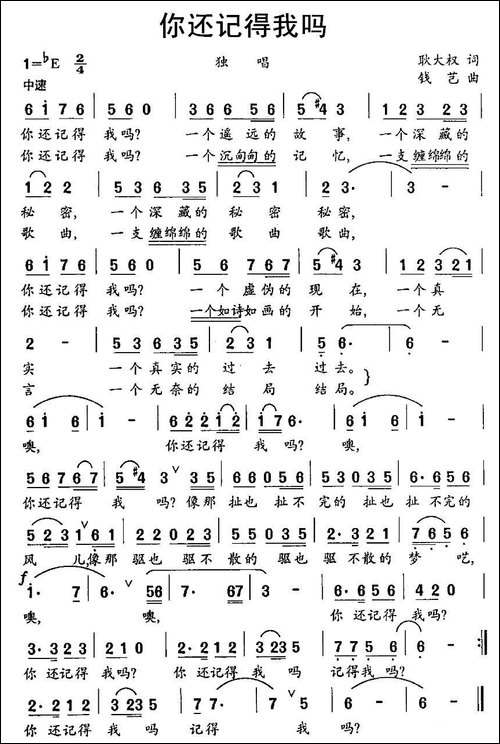 你还记得我吗
1=♭E 2/4 独 唱 耿大权 词
中速 钱 艺 曲
6 i 7 6 | 5 6 0 | 3 3 6 6 5 6 | 5 #4 3 | 1 2 3 2 3
你还记得 我吗? 一个遥远的 故 事, 一个深藏的
你还记得 我吗? 一个沉甸甸的 记 忆, 一支缠绵绵的
1 2 2 | 5 3 6 3 5 | 2 3 1 | 2 3· | 3 - |
秘密, 一个深藏的 秘密 秘密,
歌曲, 一支缠绵绵的 歌曲 歌曲,
6 i 7 6 | 5 6 0 | 5 6 7 6 7 | 5 #4 3 | 1 2 3 2 1 |
你还记得 我吗? 一个虚伪的 现 在, 一个真
你还记得 我吗? 一个如诗如画的 开 始, 一个无
2 - | 5 3 6 3 5 | 2 3 1 | 5 6· | 6 - |
实 一个真实的 过去 过去。
言 一个无奈的 结局 结局。
6 i 6 | i - | 6 2 2 1 2 | i 7 6· | 6 i 6 | i - |
噢, 你还记得 我吗? 噢,
5 6 7 6 7 6 7 | 5 #4 3 | 3 3 5 | 6· 5 3 0 3 5 | 6· 6 5 6
你还记得 我 吗? 像那 扯也 扯不 完的 扯也 扯不完的
5 2 2 3 1 6 1 | 2 2 0 2 3 | 5 5 3 5 | 2· 3 2 1 | 7 6 5 6 |
风 儿,像那 驱也 驱不 散的 驱也 驱不散的 梦 呓,
f
i· 7 | 6· 5 6 | 7· 6 7 | 3 - | 6· 6 5 6 | 4 2 0 |
噢, 噢, 你 还记得 我吗?
3· 3 2 3 | 1 2 0 | 2· 2 1 2 | 3 2 3 0 | 7 7 5 6 | 6 - :|
你 还记得 我吗? 你 还记得 我吗? 记得我 吗?
2· 2 1 2 | 3 3 2 3 5 | 7 7· | 7 5 | 6 - | 6 - |
你 还记得 我 吗 记得 我 吗?